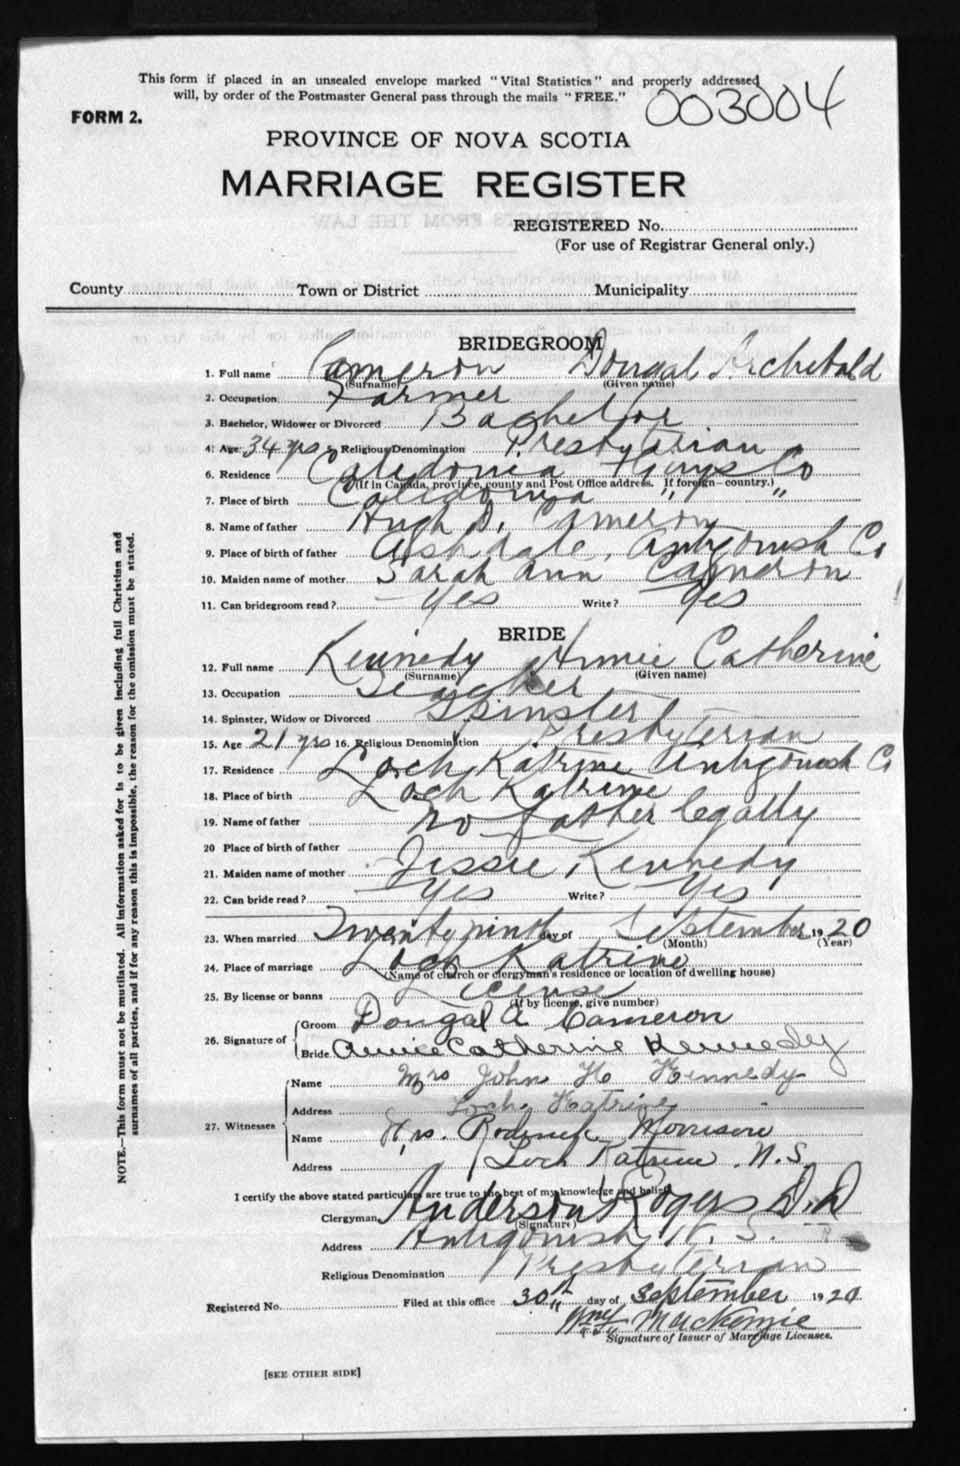 This form if placed in an unsealed envelope marked "Vital Statistics" and properly addressed
will, by order of the Postmaster General pass through the mails "FREE."
003004
FORM 2.
PROVINCE OF NOVA SCOTIA
MARRIAGE REGISTER
REGISTERED No.
(For use of Registrar General only.)
County Town or District Municipality
BRIDEGROOM
1. Full name Cameron Dougal Archibald
(Surname) (Given name)
2. Occupation Farmer
3. Bachelor, Widower or Divorced Bachelor
4. Age 34 yrs 5. Religious Denomination Presbyterian
6. Residence Caledonia Guys Co
(If in Canada, province, county and Post Office address. If foreign—country.)
7. Place of birth Caledonia " "
8. Name of father Hugh D. Cameron
9. Place of birth of father Ashdale, Antigonish Co
10. Maiden name of mother Sarah Ann Cameron
11. Can bridegroom read? Yes Write? Yes
BRIDE
12. Full name Kennedy Annie Catherine
(Surname) (Given name)
13. Occupation Teacher
14. Spinster, Widow or Divorced Spinster
15. Age 21 yrs 16. Religious Denomination Presbyterian
17. Residence Loch Katrine Antigonish Co
18. Place of birth Loch Katrine
19. Name of father no father legally
20 Place of birth of father
21. Maiden name of mother Jessie Kennedy
22. Can bride read? Yes Write? Yes
23. When married Twenty ninth day of September 1920
(Month) (Year)
24. Place of marriage Loch Katrine
(Name of church or clergyman's residence or location of dwelling house)
25. By license or banns License
(If by license, give number)
26. Signature of Groom Dougal A Cameron
Bride Annie Catherine Kennedy
27. Witnesses Name Mrs John H Kennedy
Address Loch Katrine
Name Mrs. Roderick Morrison
Address Loch Katrine N.S.
I certify the above stated particulars are true to the best of my knowledge and belief.
Clergyman Anderson Rogers D.D
(Signature)
Address Antigonish N. S.
Religious Denomination Presbyterian
Registered No. Filed at this office 30th day of September 1920
Wm MacKenzie
Signature of Issuer of Marriage Licenses.
[SEE OTHER SIDE]
NOTE.—This form must not be mutilated. All information asked for is to be given including full Christian and
surnames of all parties, and if for any reason this is impossible, the reason for the omission must be stated.